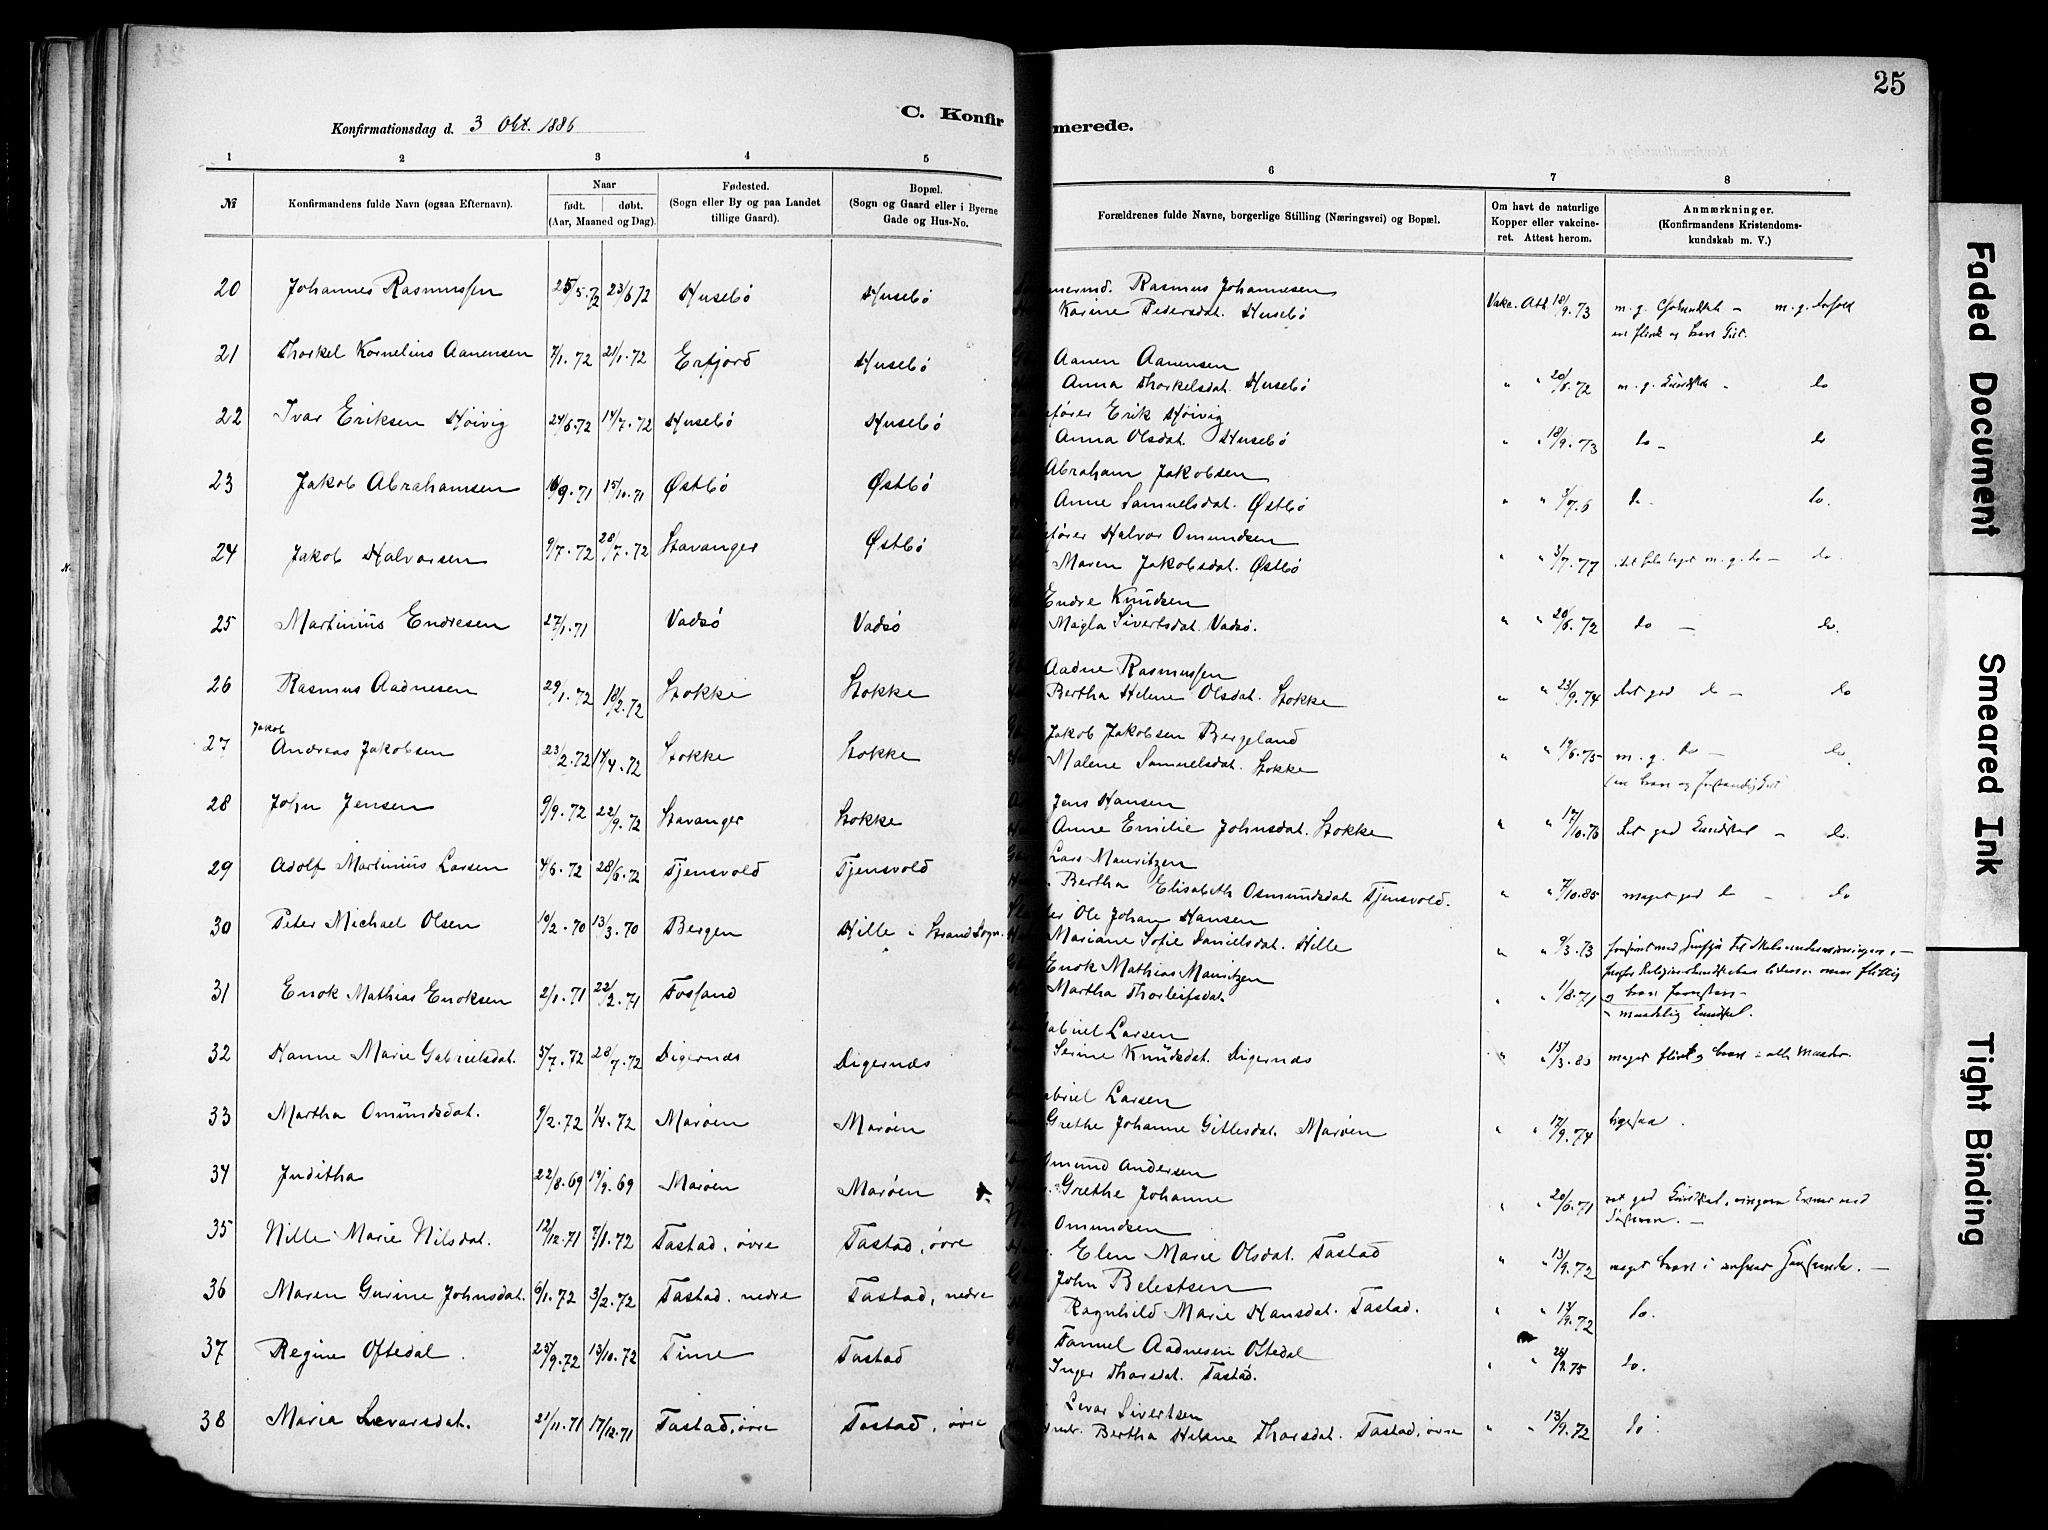 25
Konfirmationsdag d. 3 Okt. 1886
C. Konfirmerede.
1 2 3 4 5 6 7 8
№ Konfirmandens fulde Navn (ogsaa Efternavn). Naar født. døbt. (Aar, Maaned og Dag). Fødested. (Sogn eller By og paa Landet tillige Gaard). Bopæl. (Sogn og Gaard eller i Byerne Gade og Hus-No. Forældrenes fulde Navne, borgerlige Stilling (Næringsvei) og Bopæl. Om havt de naturlige Kopper eller vakcineret. Attest herom. Anmærkninger. (Konfirmandens Kristendomskundskab m. V.)
20 Johannes Rasmussen 25/5.72 23/6 72 Husebø Husebø Rasmus Johannesen
Karine Pedersdat. Husebø Vakc. Att. 18/9.73 m. g. Kundskab - m. g. Forhold
21 Thorkel Kornelius Aanensen 7/1.72 21/1.72 Erfjord Husebø Aanen Aanensen
Anna Thorkelsdat. Husebø " " 20/6.72 m. g. Kundskab - do
22 Ivar Eriksen Høivig 24/6.72 14/7.72 Husebø Husebø Erik Høivig
Anna Olsdat. Husebø " " 18/9.73 do - do
23 Jakob Abrahamsen 16/9.71 15/10.71 Østbø Østbø Abraham Jakobsen
Anne Samuelsdat. Østbø " " do - do.
24 Jakob Halvorsen 9/7.72 28/7.72 Stavanger Østbø Halvor Omundsen
Maren Jakobsdat. Østbø " " 3/7.77 m. g. do - do.
25 Martinius Endresen 27/1.71 Vadsø Vadsø Endre Knudsen
Magla Sivertsdat. Vadsø. " " 20/6.72 do - do.
26 Rasmus Aadnesen 29/1.72 18/2.72 Stokke Stokke Aadne Rasmussen
Bertha Helene Olsdat. Stokke " " 23/9.74 Ret god do - do
27 Jakob Andreas Jakobsen 23/2.72 14/4.72 Stokke Stokke Jakob Jakobsen Bergeland
Malene Samuelsdat. Stokke " " 19/6.75 m. g. do - do.
28 John Jensen 9/9.72 22/9.72 Stavanger Stokke Jens Hansen
Anne Emilie Johnsdat. Stokke " " 17/10.76 Ret god Kundskab - do.
29 Adolf Martinius Larsen 4/6.72 28/6.72 Tjensvold Tjensvold Lars Mauritzen
Bertha Elisabeth Osmundsdat Tjensvold. " " 7/10.85 meget god do - do
30 Peter Michael Olsen 10/2.70 13/3.70 Bergen Hille i Strand Sogn. Ole Johan Hansen
Mariane Sofie Danielsdat. Hille " " 9/3.73
31 Enok Mathias Enoksen 2/1.71 22/2.71 Fosland Enok Mathias Mauritzen
Martha Thorleifsdat. " " 1/8.71
32 Hanne Marie Gabrielsdat. 5/7.72 28/7.72 Digernæs Digernæs Gabriel Larsen
Serine Knudsdat. Digernæs " " 15/3.83 meget flink og brav i alle Maader.
33 Martha Omundsdat. 9/2.72 1/4.72 Marøen Marøen Gabriel Larsen
Grethe Johanne Gitlesdat. Marøen " " 17/9.74 ligesaa.
34 Juditha 22/8.69 19/9.69 Marøen Marøen Omund Andersen
Grethe Johanne " " 20/6.71
35 Nille Marie Nilsdat. 12/12.71 7/1.72 Tastad, øvre Tastad, øvre Omundsen
Elen Marie Olsdat. Tastad " " 13/9.72 meget brav i enhver Henseende. -
36 Maren Gurine Johnsdat. 6/1.72 3/2.72 Tastad. nedre Tastad, nedre John Belestsen
Ragnhild Marie Hansdat. Tastad. " " 13/9.72 do.
37 Regine Oftedal. 25/9.72 13/10.72 Time Tastad Samuel Aadnesen Oftedal
Inger Thorsdat. Tastad. " " do.
38 Maria Levarsdat. 21/11.71 17/12.71 Tastad, øvre Tastad, øvre Levar Sivertsen
Bertha Helene Thorsdat. Tastad, øvre " " 13/9.72 do
Faded Document
Smeared Ink
Tight Binding